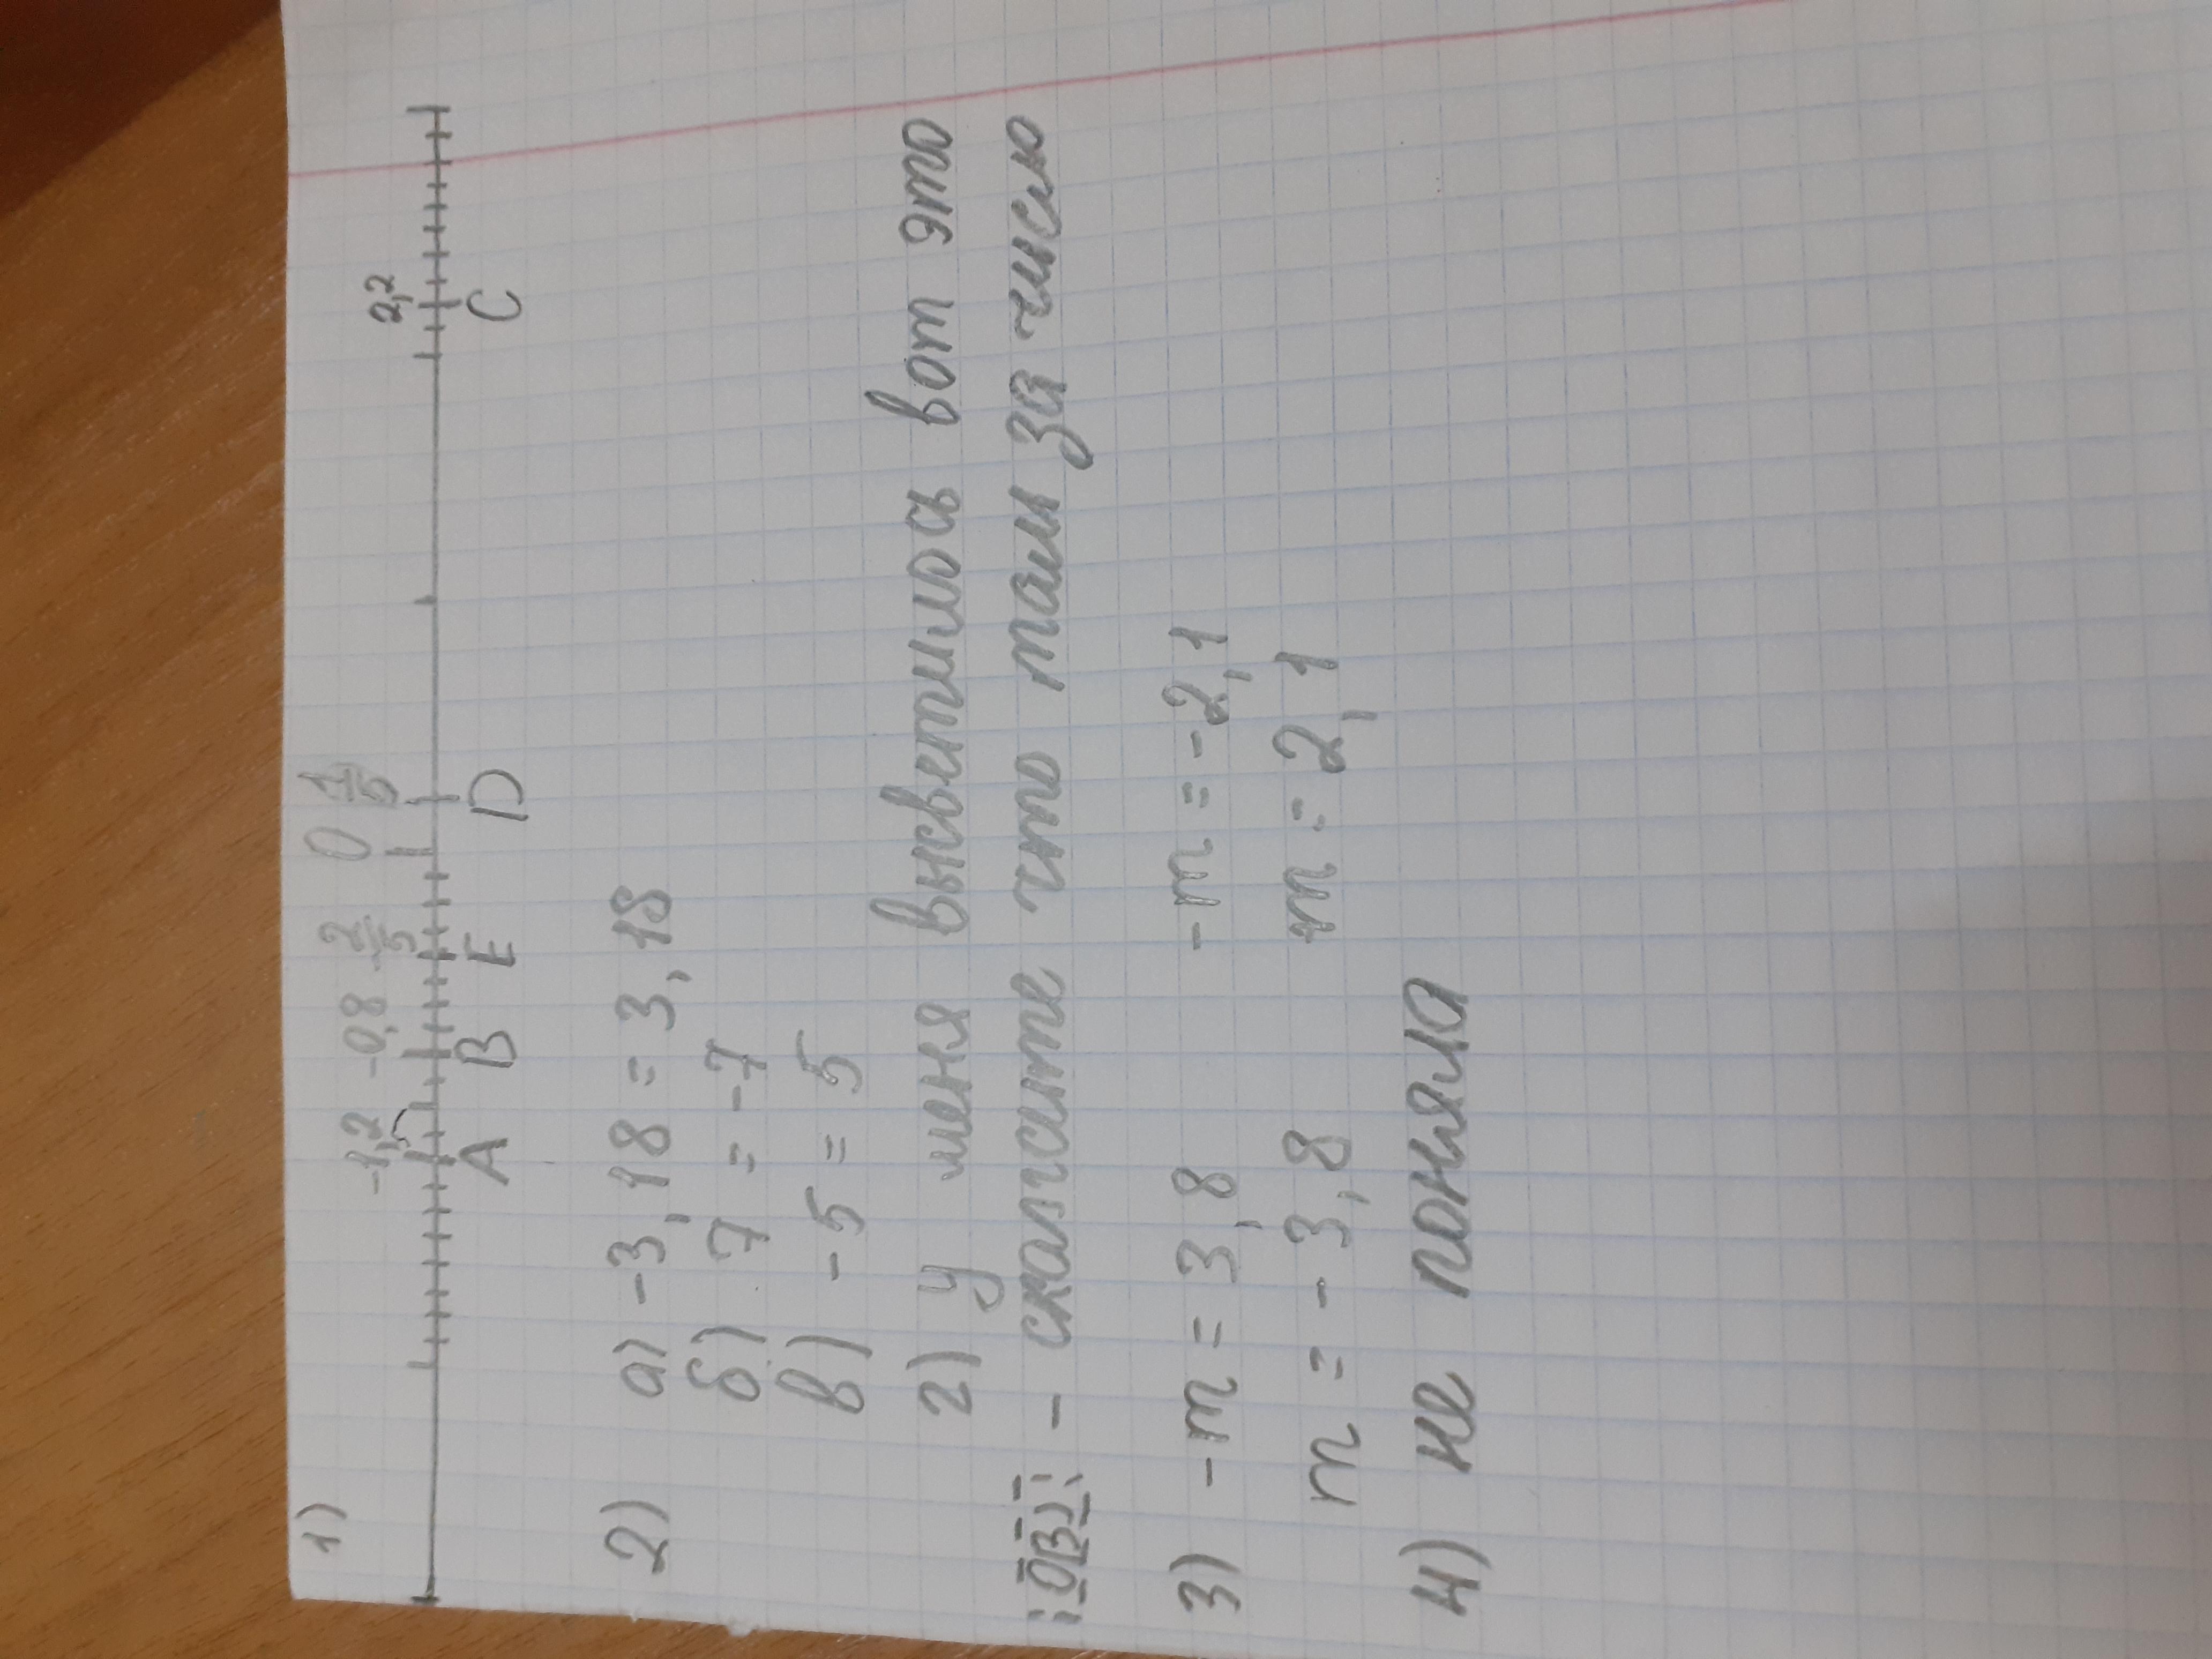 1)
-1,2 -0,8 -2/5 0 1/5 2,2
A B E D C
2) а) -3,18 = 3,18
б) 7 = -7
в) -5 = 5
г) у меня высветилось вот это
OBJ - скажите что там за число
3) -m = 3,8 -m = -2,1
m = -3,8 m = 2,1
4) не поняла